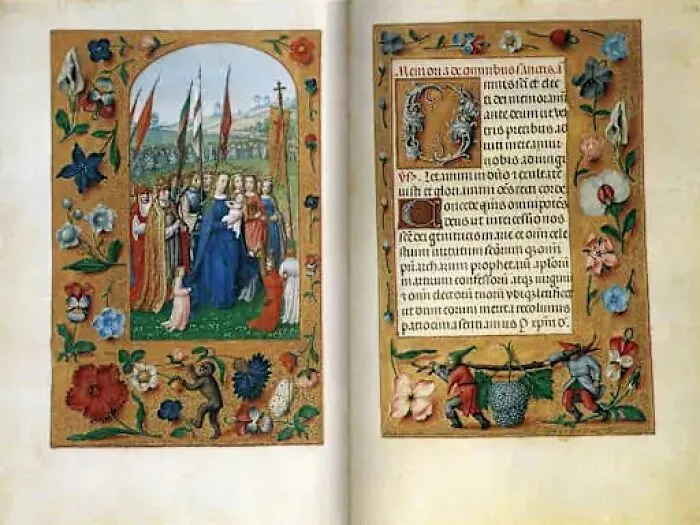 Memoria de omnibus sanctis. a
mnes sci et elec
ti dei memoram
ante deum ut ve
tris precibus ad
iuti mereamur
vobis adiungi
Letamini in dno et exultate
iusti et gloriamini oes recti corde
Concede qms omnipotes
deus ut intercessio nos
sce dei genitricis marie et oim celes
tium virtutum sanctorum
priarcharum prophetarum aplorum
martirum confessorum atqz virginu
et oim electorum tuorum ubiqz letificet
ut dum eorum merita recolimus
patrocinia sentiamus P xpm d